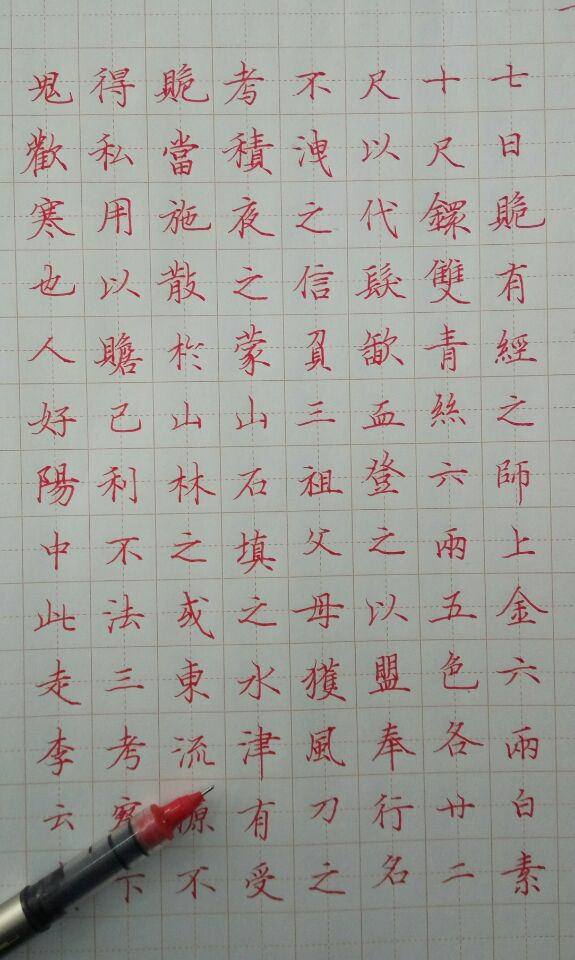 七日䞈有經之師上金六兩白素
十尺鐶雙青絲六兩五色各廿二
尺以代髮歃血登之以盟奉行名
不洩之信負三祖父母獲風刀之
考積夜之蒙山石填之水津有受
䞈當施散於山林之或東流源不
得私用以贍己利不法三考下
鬼歡寒也人好陽中此走李云